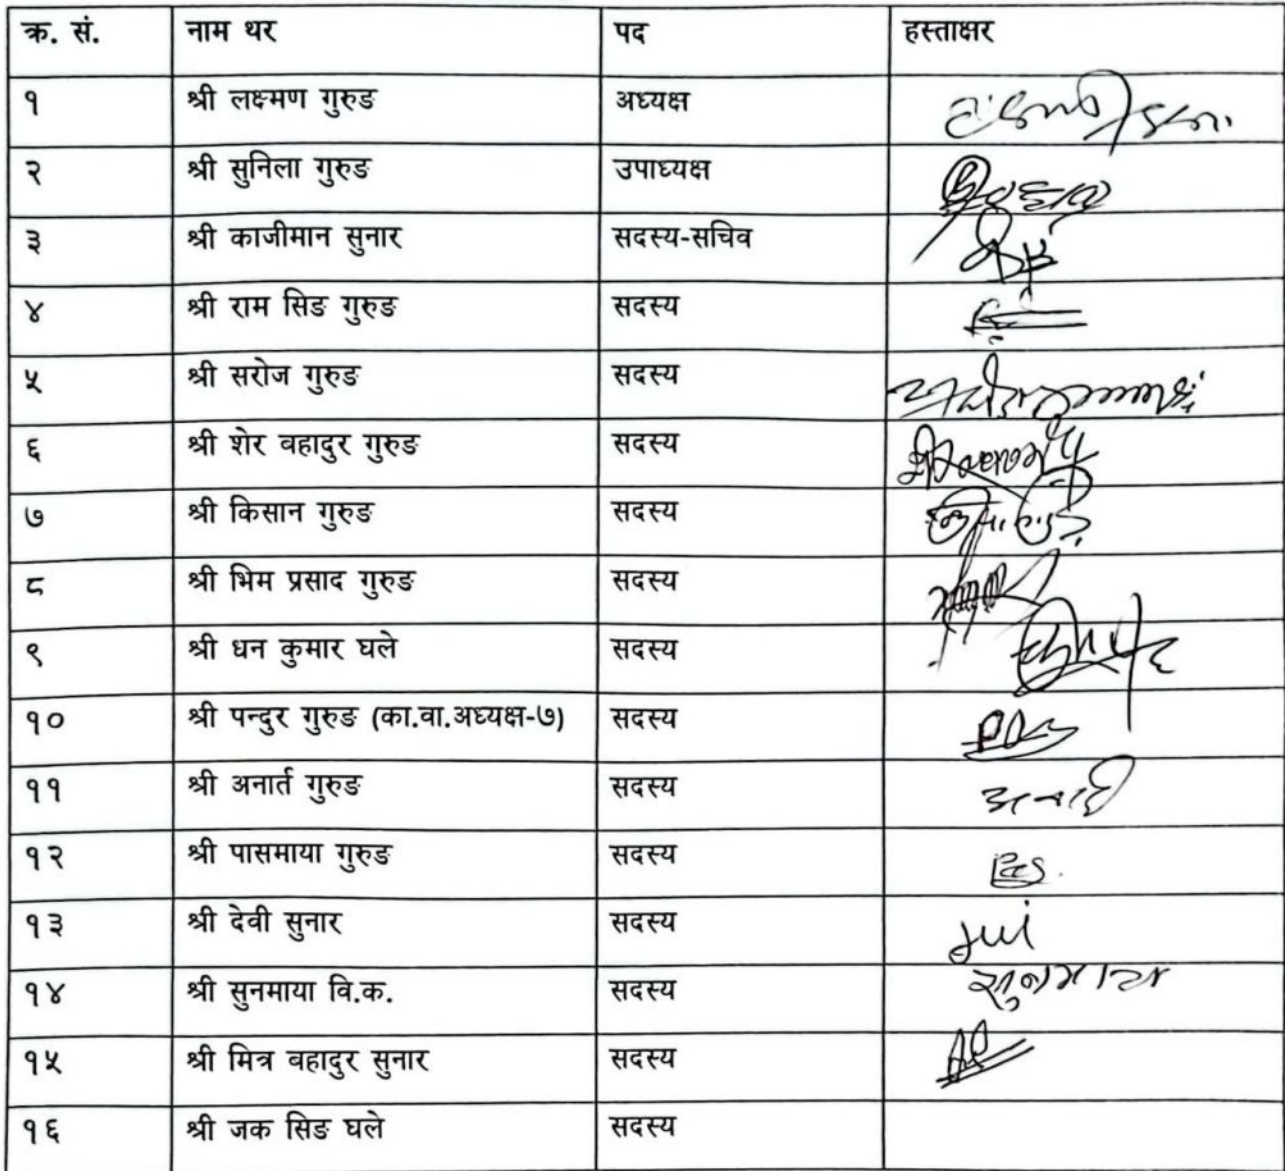 क्र. सं. नाम थर पद हस्ताक्षर
१ श्री लक्ष्मण गुरुङ अध्यक्ष
२ श्री सुनिला गुरुङ उपाध्यक्ष
३ श्री काजीमान सुनार सदस्य-सचिव
४ श्री राम सिङ गुरुङ सदस्य
५ श्री सरोज गुरुङ सदस्य
६ श्री शेर वहादुर गुरुङ सदस्य
७ श्री किसान गुरुङ सदस्य
८ श्री भिम प्रसाद गुरुङ सदस्य
९ श्री धन कुमार घले सदस्य
१० श्री पन्दुर गुरुङ (का.वा.अध्यक्ष-७) सदस्य
११ श्री अनार्त गुरुङ सदस्य
१२ श्री पासमाया गुरुङ सदस्य
१३ श्री देवी सुनार सदस्य
१४ श्री सुनमाया वि.क. सदस्य सुनमाया
१५ श्री मित्र वहादुर सुनार सदस्य
१६ श्री जक सिङ घले सदस्य